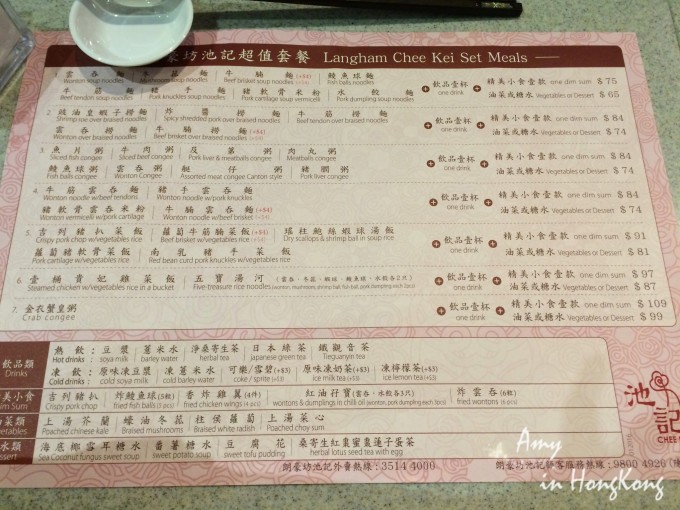 豪坊池記超值套餐 Langham Chee Kei Set Meals
1. 雲吞麵 牛筋麵 牛腩麵(+$4) 鯪魚球麵
Wonton soup noodles Beef brisket soup noodles Fish balls noodles
牛筋麵 豬手麵 豬軟骨米粉 水餃麵
Beef tendon soup noodles Pork knuckles soup noodles Pork cartilage soup vermicelli Pork dumpling soup noodles
飲品壹杯 one drink
精美小食壹款 one dim sum $75
油菜或糖水 Vegetables or Dessert $65
2. 豉油皇蝦子撈麵 炸醬撈麵 牛筋撈麵
Shrimp roe over braised noodles Spicy shredded pork over braised noodles Beef tendon over braised noodles
雲吞撈麵 牛腩撈麵(+$4)
Wonton over braised noodles Beef brisket over braised noodles
飲品壹杯 one drink
精美小食壹款 one dim sum $84
油菜或糖水 Vegetables or Dessert $74
3. 魚片粥 牛肉粥 及第粥 肉丸粥
Sliced fish congee Sliced beef congee Pork liver & meatballs congee Meatballs congee
鯪魚球粥 雲吞粥 艇仔粥 豬膶粥
Fish balls congee Wonton Congee Assorted meat congee Canton style Pork liver congee
飲品壹杯 one drink
精美小食壹款 one dim sum $84
油菜或糖水 Vegetables or Dessert $74
4. 牛筋雲吞麵 豬手雲吞麵
Wonton noodle w/beef tendons Wonton noodle w/pork knuckles
豬軟骨雲吞米粉 牛腩雲吞麵(+$4)
Wonton vermicelli w/pork cartilage Wonton noodle w/beef brisket
飲品壹杯 one drink
精美小食壹款 one dim sum $84
油菜或糖水 Vegetables or Dessert $74
5. 吉列豬扒菜飯 蘿蔔牛筋腩菜飯(+$4) 瑤柱鮑絲蝦球湯飯
Crispy pork chop w/vegetables rice Beef brisket w/vegetables rice Dry scallops & shrimp ball in soup rice
蘿蔔豬軟骨菜飯 南乳豬手菜飯
Pork cartilage w/vegetables rice Red bean curd pork knuckles w/vegetables rice
飲品壹杯 one drink
精美小食壹款 one dim sum $91
油菜或糖水 Vegetables or Dessert $81
6. 壹桶貴妃雞菜飯 五寶湯河
Steamed chicken w/vegetables rice in a bucket Five-treasure rice noodles
飲品壹杯 one drink
精美小食壹款 one dim sum $97
油菜或糖水 Vegetables or Dessert $87
7. 金衣蟹皇粥
Crab congee
飲品壹杯 one drink
精美小食壹款 one dim sum $109
油菜或糖水 Vegetables or Dessert $99
飲品類 Drinks
熱飲: 豆漿 薏米水 淨桑寄生茶 日本綠茶 鐵觀音茶
Hot drinks: soya milk barley water herbal tea japanese green tea Tieguanyin tea
凍飲: 原味凍豆漿 凍薏米水 可樂/雪碧(+$3) 原味凍奶茶(+$3) 凍檸檬茶(+$3)
Cold drinks: cold soya milk cold barley water coke / sprite (+$3) ice milk tea (+$3) ice lemon tea (+$3)
美小食 Dim Sum
吉列豬扒 炸鯪魚球(5粒) 香炸雞翼(4件) 紅油孖寶(雲吞、水餃各3只) 炸雲吞(6粒)
Crispy pork chop fried fish balls (5 pcs) fried chicken wings (4 pcs) wontons & dumplings in chilli oil (wonton, pork dumpling each 3pcs) fried wontons (6 pcs)
油菜類 Vegetables
上湯芥蘭 蠔油冬菇 柱侯蘿蔔 上湯菜心
Poached chinese kale Braised mushrooms Braised white radish Poached choy sum
水類 Dessert
海底椰雪耳糖水 番薯糖水 豆腐花 桑寄生紅棗蜜棗蓮子蛋茶
Sea Coconut fungus sweet soup sweet potato soup sweet tofu pudding herbal lotus seed tea with egg
朗豪坊池記外賣熱線: 3514 4006
朗豪坊池記顧客服務熱線: 9800 4926
池記
CHEE
Amy in HongKong